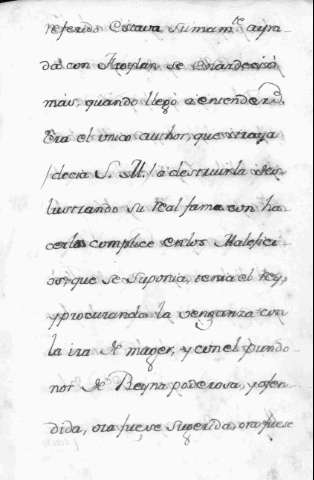 referido estava sumam.te ayra-
da con Froylán se enardeció
mas, quando llegó a entender,
Era el unico author, que
/decia S. M./ á destruirla des-
lustrando su Real fama con ha-
cerla complice en los Malefici-
os, que se suponia, tenia el Rey,
y procurando la venganza con
la ira de muger, y con el pundo-
nor de Reyna poderosa, y ofen-
dida, ora fuese sugerida, ora fuese